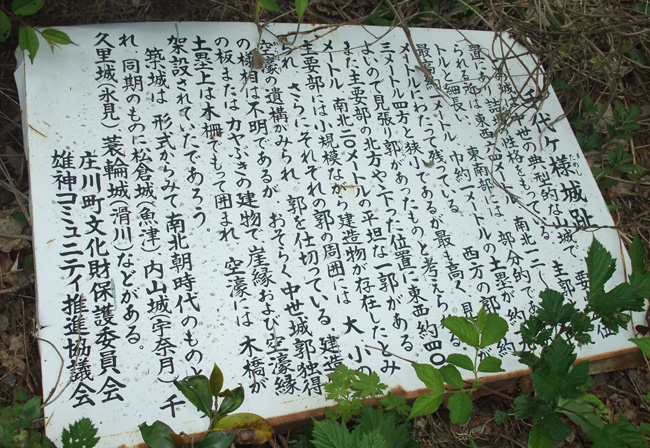 千代ヶ様城趾
たいしろ
この城は中世の典型的な山城で、主郭
的性格をもっている。
られる所は東西 南北一二
トルと細長い。東南部には 部分的で
最高 メートル、巾約一メートルの土塁が約
メートルにわたって残っている。西方の郭
三メートル四方と狭小であるが最も高く、見
よいので見張り郭があったものと考えら
また主要部の北方やや下った位置に東西約四〇
メートル、南北二〇メートルの平坦な一郭がある。
主要部には小規模ながら建造物が存在したとみ
られ、さらにそれぞれの郭の周囲には、大小の
空濠の遺構がみられ、郭を仕切っている。建造
の様相は不明であるが、おそらく中世城郭独得
の板またはカヤぶきの建物で、崖縁および空濠縁
土塁上は木柵でもって囲まれ、空濠には、木橋が
架設されていたであろう。
築城は、形式からみて南北朝時代のものと
れ、同期のものに松倉城(魚津)内山城(宇奈月)千
久里城(氷見)蓑輪城(滑川)などがある。
庄川町文化財保護委員会
雄神コミュニティ推進協議会